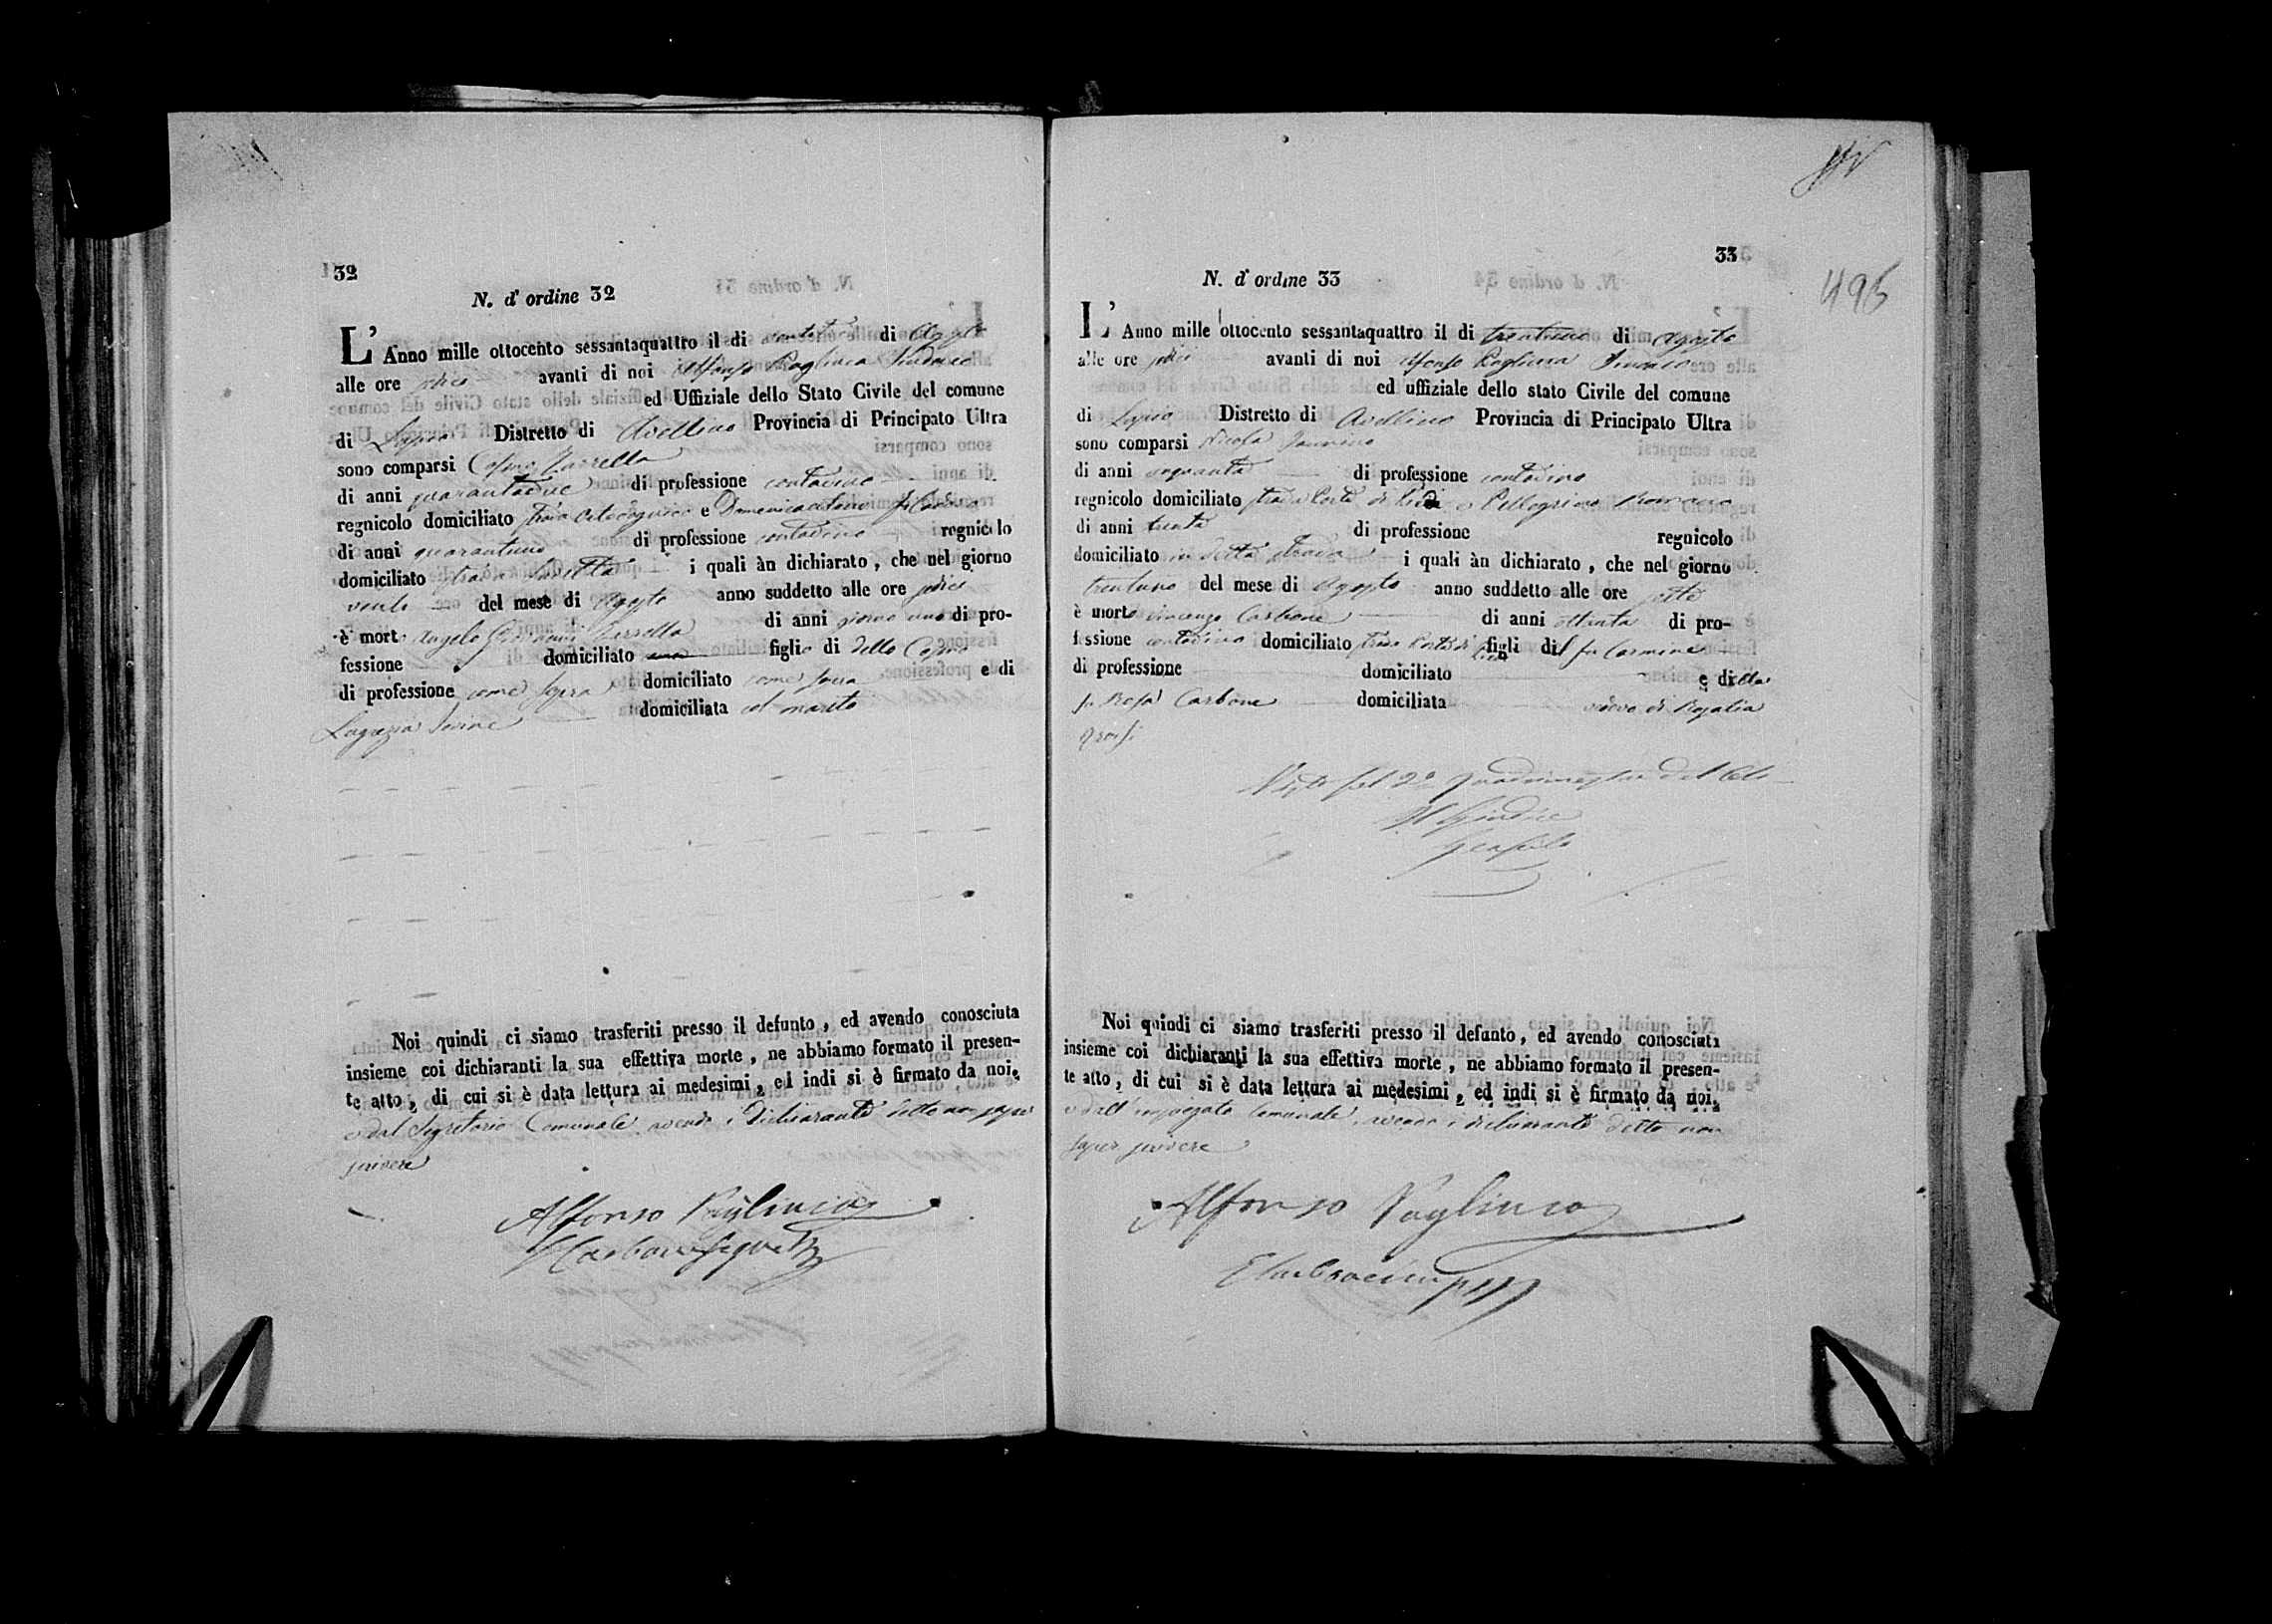 32
N. d' ordine 32
L' Anno mille ottocento sessantaquattro il di di Agosto
alle ore avanti di noi Alfonso Pagliuca Sindaco
ed Uffiziale dello Stato Civile del comune
di Distretto di Avellino Provincia di Principato Ultra
sono comparsi Cosmo
di anni quarantadue di professione contadino
regnicolo domiciliato strada e
di anni quarantuno di professione contadino regnicolo
domiciliato strada i quali àn dichiarato , che nel giorno
venti del mese di Agosto anno suddetto alle ore
è morto Angelo di anni giorno uno di pro-
fessione domiciliato figlio di detto Cosmo
di professione come sopra domiciliato come sopra e di
domiciliata col marito
Noi quindi ci siamo trasferiti presso il defunto , ed avendo conosciuta
insieme coi dichiaranti la sua effettiva morte , ne abbiamo formato il presen-
te atto , di cui si è data lettura ai medesimi , ed indi si è firmato da noi,
e dal Segretario Comunale avendo i dichiaranti detto non saper
scrivere
Alfonso Pagliuca
33
495
N. d' ordine 33
L' Anno mille ottocento sessantaquattro il di trentuno di Agosto
alle ore avanti di noi Alfonso Pagliuca Sindaco
ed uffiziale dello stato Civile del comune
di Distretto di Avellino Provincia di Principato Ultra
sono comparsi Nicola
di anni di professione contadino
regnicolo domiciliato strada e Pellegrino
di anni trenta di professione regnicolo
domiciliato in detta strada i quali àn dichiarato , che nel giorno
trentuno del mese di Agosto anno suddetto alle ore sette
è morto Vincenzo Carbone di anni ottanta di pro-
fessione contadino domiciliato strada figli di fu Carmine
di professione domiciliato e della
fu Rosa Carbone domiciliata vedovo di Rosalia
Visto pel 2º quadrimestre del
Il Giudice
Noi quindi ci siamo trasferiti presso il defunto , ed avendo conosciuta
insieme coi dichiaranti la sua effettiva morte , ne abbiamo formato il presen-
te atto , di cui si è data lettura ai medesimi , ed indi si è firmato da noi,
e dall' impiegato Comunale, avendo i dichiaranti detto non
saper scrivere
Alfonso Pagliuca